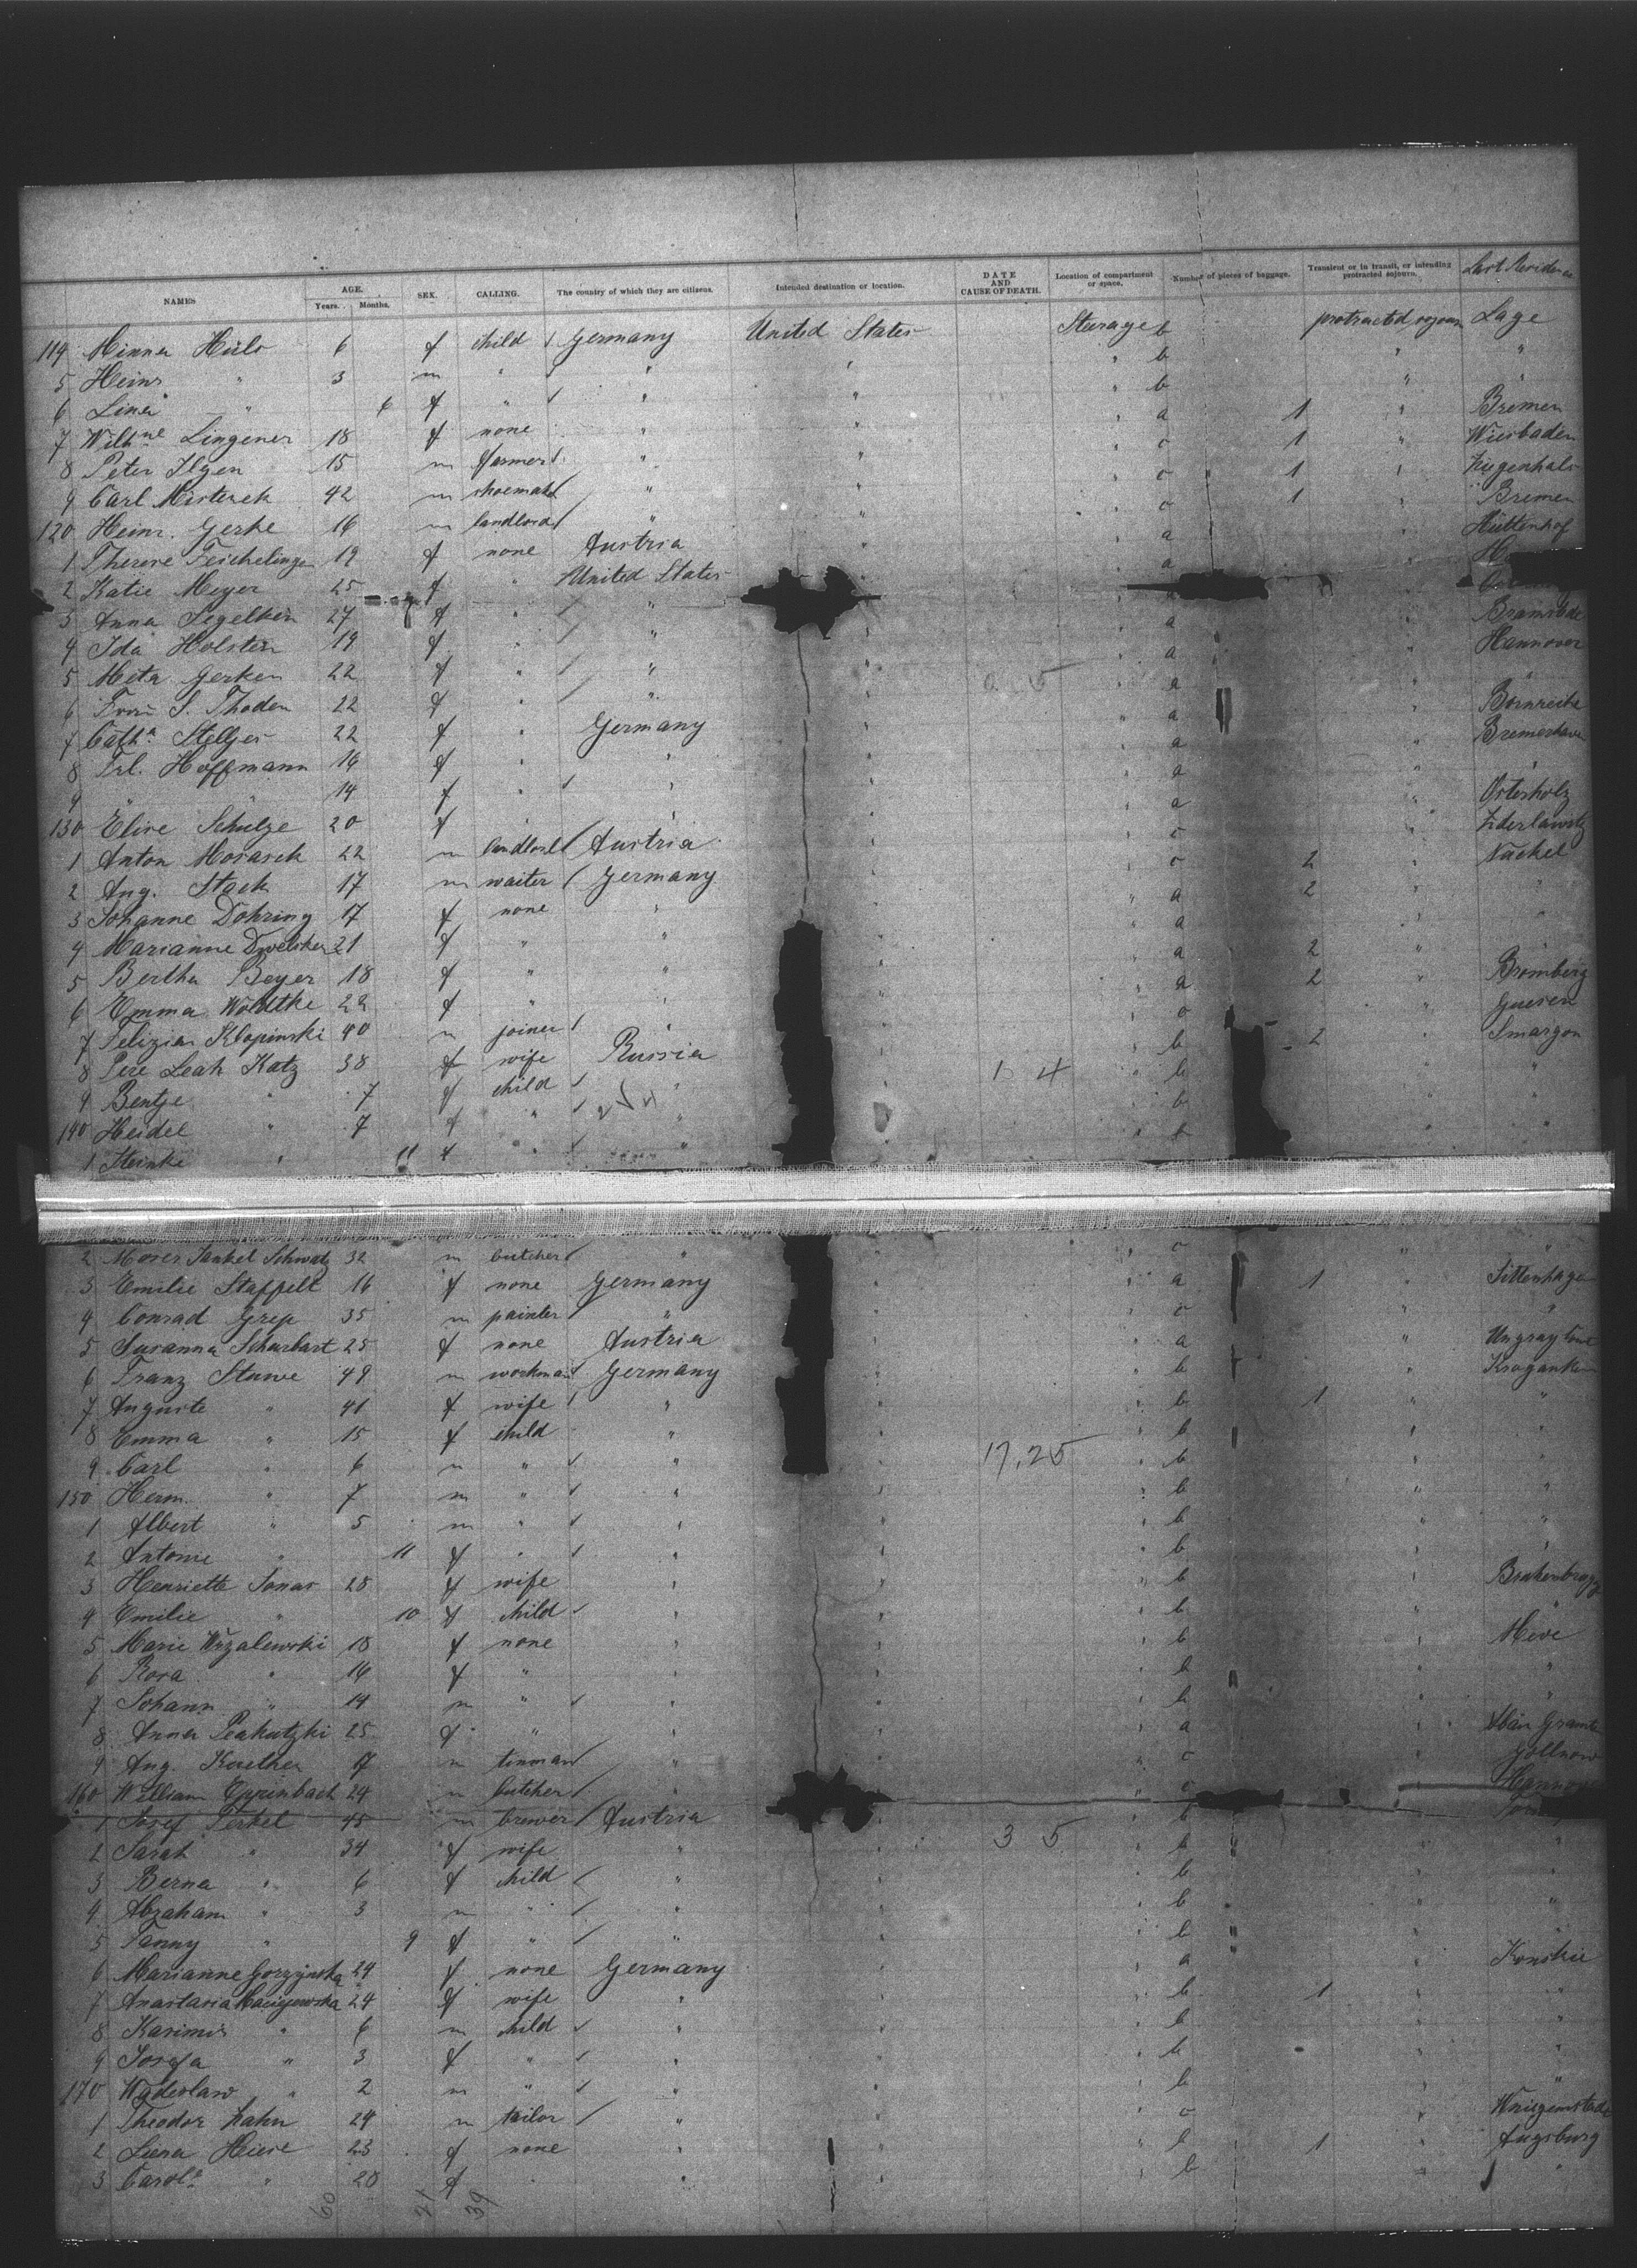 NAMES AGE. Years. Months. SEX. CALLING. The country of which they are citizens. Intended destination or location. DATE AND CAUSE OF DEATH. Location of compartment or space. Number of pieces of baggage. Transient or in transit, or intending protracted sojourn. Last Residence
114 Minna Hüls 6 f child Germany United States Steerage b protracted sojourn Lage
5 Heinr " 3 m " " " " b " "
6 Lina " 6 f " " " " b " "
7 Wilhne Lingener 18 f none " " " a 1 " Bremen
8 Peter Ilgen 15 m farmer " " " c 1 " Wiesbaden
9 Carl Misterek 42 m shoemak " " " c 1 " Ziegenhals
120 Heinr. Gerke 16 m landlord " " " c 1 " Bremen
1 Therese Feichelinger 19 f none Austria " " a " Hüttenhof
2 Katie Meyer 25 f " United States " a
3 Anna Segelken 27 f " " " "
4 Ida Holsten 19 f " " " " a " Bramstedt
5 Meta Gerken 22 f " " " " a " Hannover
6 Frau S. Thoden 22 f " " " " a " "
7 Catha Stelljes 22 f " Germany " " a "
8 Frl. Hoffmann 16 f " " " " a " Bremerhaven
9 " " 14 f " " " " a " "
130 Elise Schulze 20 f " " " " a " Osterholz
1 Anton Morasek 22 m landlord Austria " " c
2 Aug. Stock 17 m waiter Germany " " c 2 " Nackel
3 Johanne Dohring 17 f none " " " a 2 " "
4 Marianne 21 f " " " " a " "
5 Bertha Beyer 18 f " " " " a 2 " "
6 Emma Woldtke 22 f " " " " a 2 " Bromberg
7 Felizian Klopinski 40 m joiner " " " c " Gnesen
8 Pere Leah Katz 38 f wife Russia " " b 2 " Smargon
9 Bentje " 7 f child " " " b " "
140 Heidel " 7 f " " " " b " "
1 Steinke " 11 f " " " " b " "
2 Moses Jankel Schwatz 32 m butcher " " " c " "
3 Emilie Staffelt 16 f none Germany " " a 1 " Sittenhagen
4 Conrad Grep 35 m painter " " " c " "
5 Susanna Schurbart 25 f none Austria " " a "
6 Franz Stuwe 49 m workman Germany " " b "
7 Auguste " 41 f wife " " " b 1 " "
8 Emma " 15 f child " " " b " "
9 Carl " 6 m " " " 17,25 " b " "
150 Herm. " 7 m " " " " b " "
1 Albert " 5 m " " " " b " "
2 Antonie " 11 f " " " " b " "
3 Henriette Jonas 28 f wife " " " b "
4 Emilie " 10 f child " " " b " "
5 Marie Wrzalewski 18 f none " " " b " Mewe
6 Rosa " 16 f " " " " b " "
7 Johann " 14 m " " " " b " "
8 Anna Peakutzki 25 f " " " " a "
9 Aug. Kuether 17 m tinman " " " c " Gollnow
160 William Eppinbach 24 m butcher " " " c " Hannover
1 Josef Perkel 45 m brewer Austria " " b
2 Sarah " 34 f wife " " 3 5 " b " "
3 Berna " 6 f child " " " b " "
4 Abraham " 3 m " " " " b " "
5 Fanny " 9 f " " " " b " "
6 Marianne Gorzynska 24 f none Germany " " a " Konskie
7 Anastasia Maciejewska 24 f wife " " " b 1 " "
8 Kasimir " 6 m child " " " b " "
9 Josefa " 3 f " " " " b " "
170 Wadeslaw " 2 m " " " " b " "
1 Theodor Zahn 24 m tailor " " " c "
2 Lena Hiese 23 f none " " " b 1 " Augsburg
3 Carola " 20 f " " " b " "
60 21 39